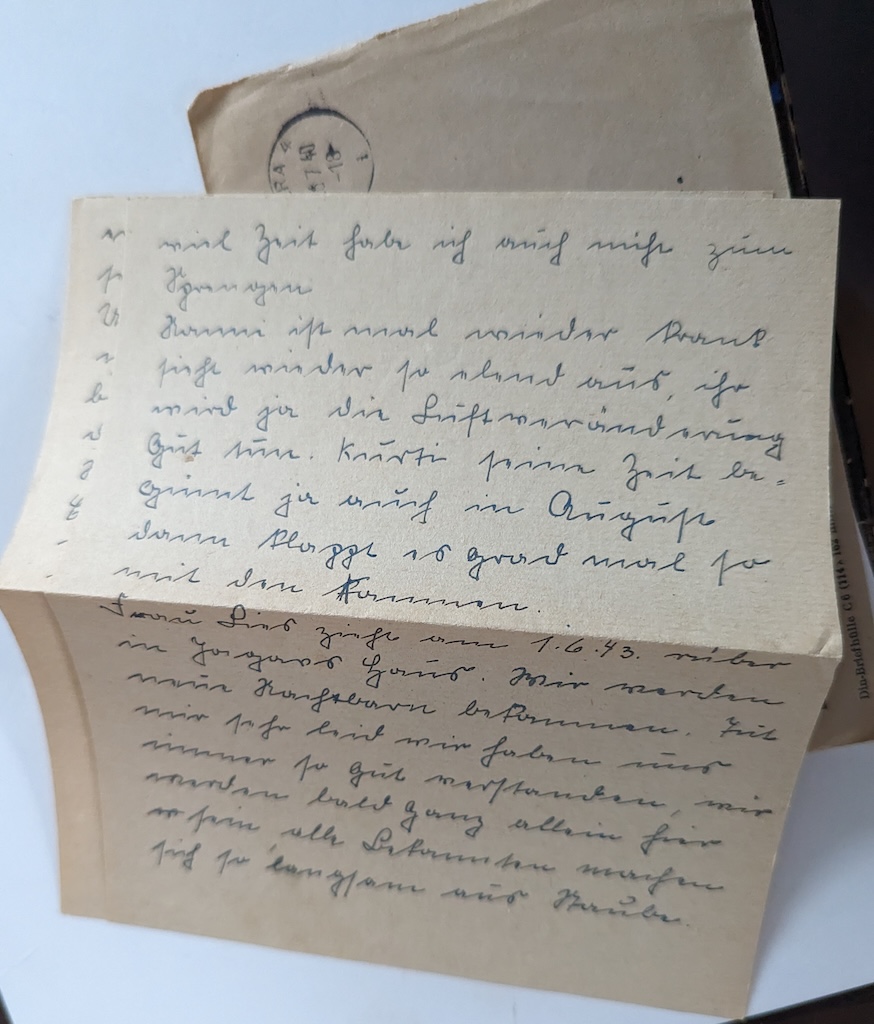 RA 4
viel Zeit habe ich auch nicht zum
Springen
Hanni ist mal wieder krank
sieht wieder so elend aus, ihr
wird ja die Luftveränderung
Gut tun. Kurti seine Zeit be-
ginnt ja auch in August
dann klappt es grad mal so
mit den kommen.
Frau Lies zieht am 1.6.43. rüber
in Haus. Wir werden
neue Nachbarn bekommen. Tut
mir sehr leid wir haben uns
immer so gut verstanden, wir
werden bald ganz allein hier
sein, alle Bekannten machen
sich so langsam aus Staube.
Din-Briefhülle C6 (114 × 162 mm)